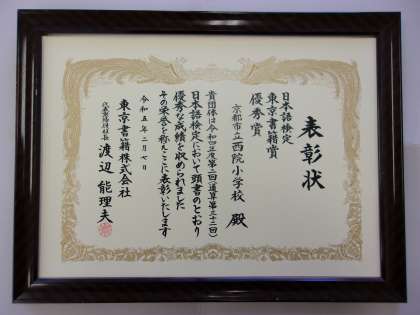 表彰状
日本語検定
東京書籍賞
優秀賞
京都市立西院小学校 殿
貴団体は令和四年度第二回(通算第三十二回)
日本語検定において頭書のとおり
優秀な成績を収められました
その栄誉を称えここに表彰いたします
令和五年二月七日
東京書籍株式会社
代表取締役社長 渡辺能理夫